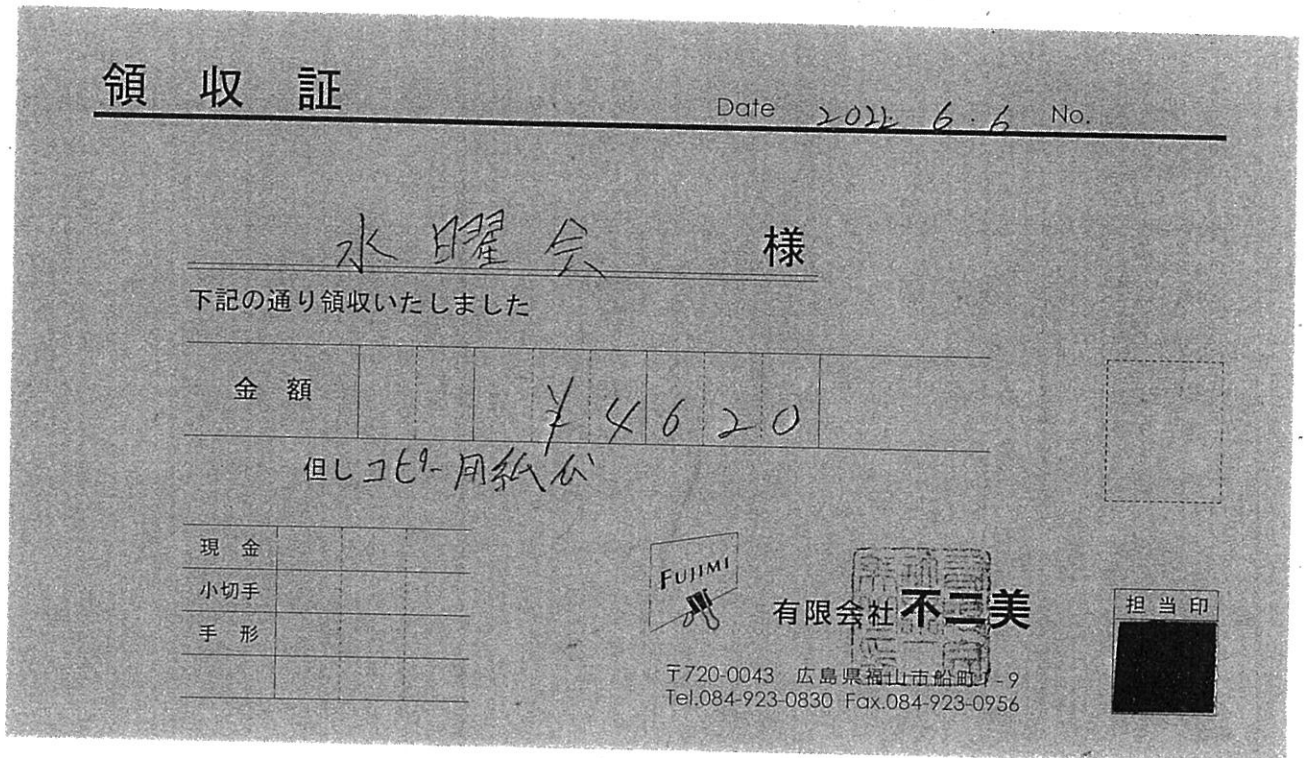 領収証
Date 2022. 6. 6 No.
水曜会 様
下記の通り領収いたしました
金額 ¥4620
但しコピー用紙代
現金
小切手
手形
FUJIMI
有限会社 不二美
担当印
〒720-0043 広島県福山市船町7-9
Tel.084-923-0830 Fax.084-923-0956